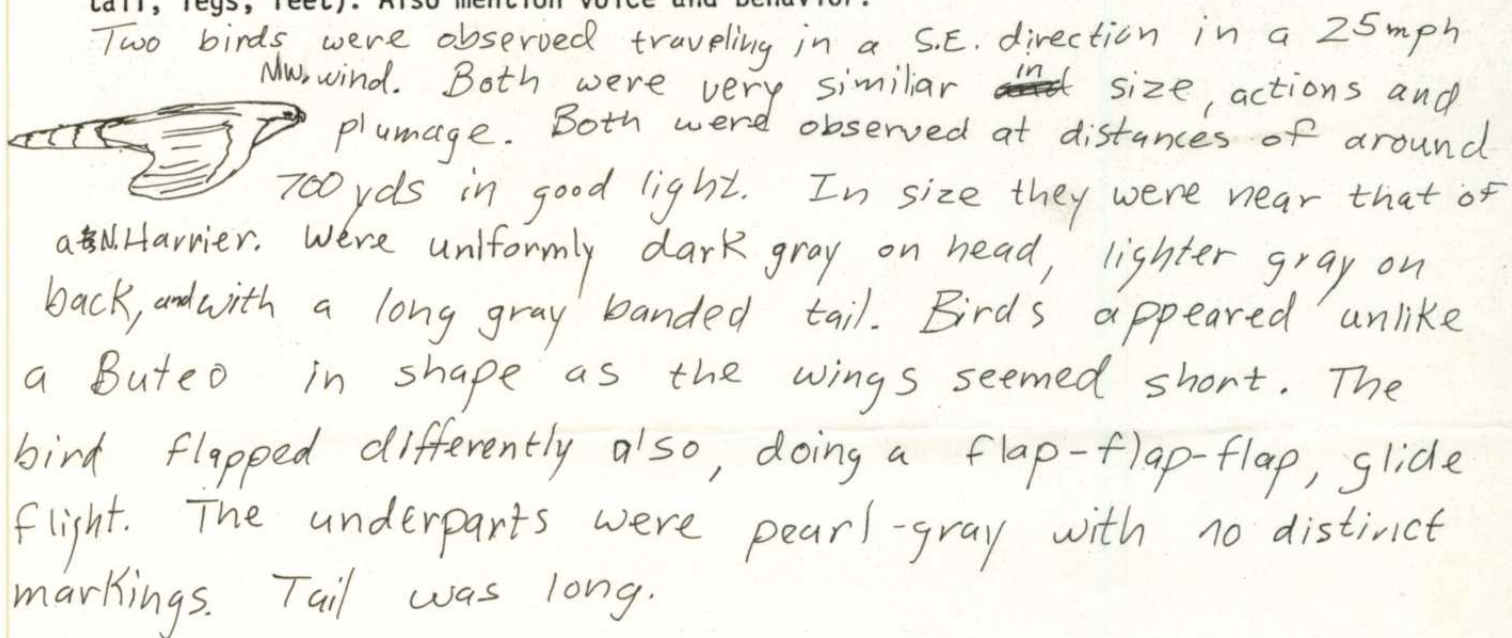 tail, legs, feet). Also mention voice and behavior.
Two birds were observed traveling in a S.E. direction in a 25mph
NW. wind. Both were very similiar in size, actions and
plumage. Both were observed at distances of around
700 yds in good light. In size they were near that of
a N. Harrier. Were uniformly dark gray on head, lighter gray on
back, and with a long gray banded tail. Birds appeared unlike
a Buteo in shape as the wings seemed short. The
bird flapped differently also, doing a flap-flap-flap, glide
flight. The underparts were pearl-gray with no distinct
markings. Tail was long.